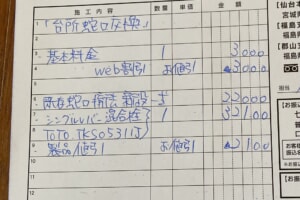 施工内容 数量 単価 金額
「台所蛇口交換」
基本料金 1 3000
web割引 お値引 ▲3000
既存蛇口撤去、新設 1 22000
シングルレバー混合栓 1 32100
TOTO TKS05311J)
製品値引 お値引 ▲2100
【仙台本
宮城
【福島支
福島
【郡山支
担当
【お振